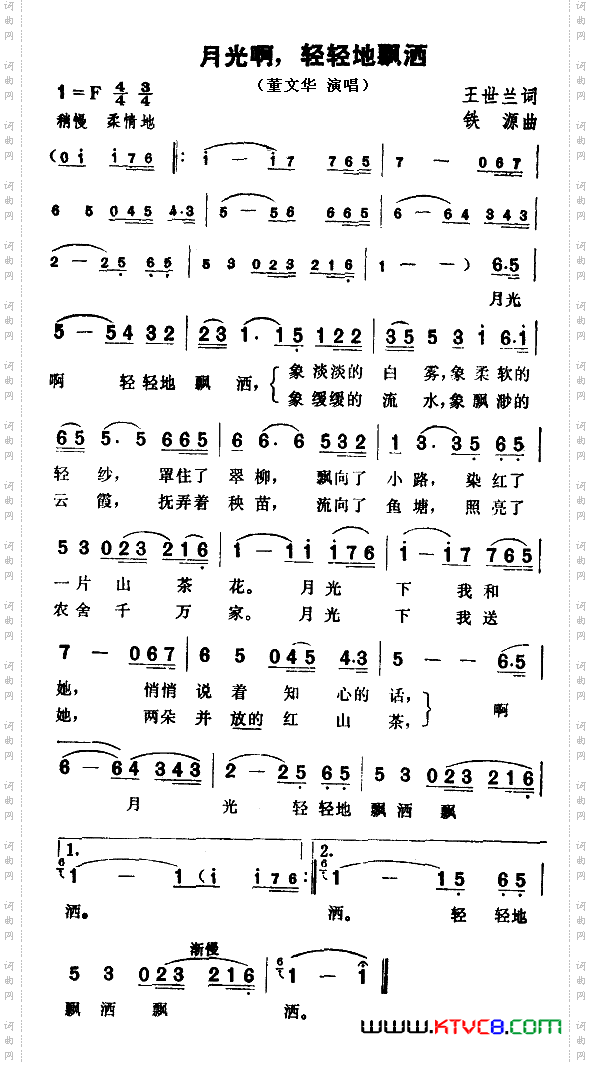 月光啊，轻轻地飘洒
（董文华 演唱）
1=F 4/4 3/4
王世兰词
稍慢 柔情地
铁 源曲
(0i i176 ‖: i — i7 765 | 7 — 067 |
6 5 045 4·3 | 5 — 56 665 | 6 — 64 343 |
2 — 25 65 | 5 3 023 216 | 1 — —) 6·5 |
月光
5 — 54 32 | 23 1· 15 122 | 35 5 31 6·1 |
啊 轻轻地 飘 洒，{象淡淡的 白 雾，象柔软的
象缓缓的 流 水，象飘渺的
65 5· 5 665 | 6 6· 6 532 | 1 3· 35 65 |
轻 纱， 罩住了 翠柳， 飘向了 小路， 染红了
云 霞， 抚弄着 秧苗， 流向了 鱼塘， 照亮了
5 3 023 216 | 1 — 1i i76 | i — i7 765 |
一片 山 茶 花。 月光 下 我和
农舍 千 万 家。 月光 下 我送
7 — 067 | 6 5 045 4·3 | 5 — — 6·5 |
她， 悄悄 说 着 知 心的 话，} 啊
她， 两朵 并 放的 红 山 茶，
6 — 64 343 | 2 — 25 65 | 5 3 023 216 |
月 光 轻 轻地 飘 洒 飘
1. 2.
6 1 — 1(i i176 :‖ 6 1 — 15 65 |
洒。 洒。 轻 轻地
渐慢
5 3 023 216 | 6 1 — 1 ‖
飘 洒 飘 洒。
www.KTVC8.com
词曲网